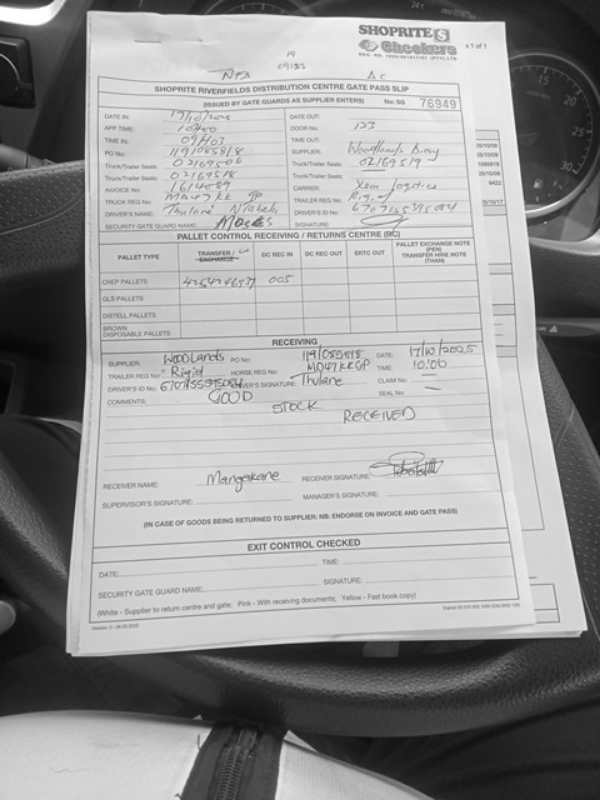 SHOPRITE S
Checkers
REG. NO. 1929/001817/07 (PTY) LTD
1 of 1
19
09:23
NFA
AC
SHOPRITE RIVERFIELDS DISTRIBUTION CENTRE GATE PASS SLIP
(ISSUED BY GATE GUARDS AS SUPPLIER ENTERS) No: SG 76949
DATE IN: 17/10/2025 DATE OUT:
APP TIME: 10H00 DOOR No: 123
TIME IN: 09H03 TIME OUT:
PO No: 1191085818 SUPPLIER: Woodlands Dairy
Truck/Trailer Seals: 02169506 Truck/Trailer Seals: 02169519
Truck/Trailer Seals: 02169518 Truck/Trailer Seals:
INVOICE No: 1614089 CARRIER: Logistics
TRUCK REG No: MD47KK GP TRAILER REG No: Rigid
DRIVER'S NAME: Thulani DRIVER'S ID No: 6707155395084
SECURITY GATE GUARD NAME: Moses SIGNATURE:
PALLET CONTROL RECEIVING / RETURNS CENTRE (RC)
PALLET TYPE TRANSFER / EXCHANGE DC REC IN DC REC OUT ERTC OUT PALLET EXCHANGE NOTE (PEN) TRANSFER HIRE NOTE (THAN)
CHEP PALLETS 4254246937 005
GLS PALLETS
DISTELL PALLETS
BROWN DISPOSABLE PALLETS
RECEIVING
SUPPLIER: WOODLANDS PO No: 1191085818 DATE: 17/10/2025
TRAILER REG No: Rigid HORSE REG No: MD47KKGP TIME: 10:06
DRIVER'S ID No: 6707155395084 DRIVER'S SIGNATURE: Thulane CLAIM No:
COMMENTS: GOOD SEAL No:
STOCK
RECEIVED
RECEIVER NAME: Mangakane RECEIVER SIGNATURE:
SUPERVISOR'S SIGNATURE: MANAGER'S SIGNATURE:
(IN CASE OF GOODS BEING RETURNED TO SUPPLIER: NB: ENDORSE ON INVOICE AND GATE PASS)
EXIT CONTROL CHECKED
DATE: TIME:
SECURITY GATE GUARD NAME: SIGNATURE:
(White - Supplier to return centre and gate; Pink - With receiving documents; Yellow - Fast book copy)